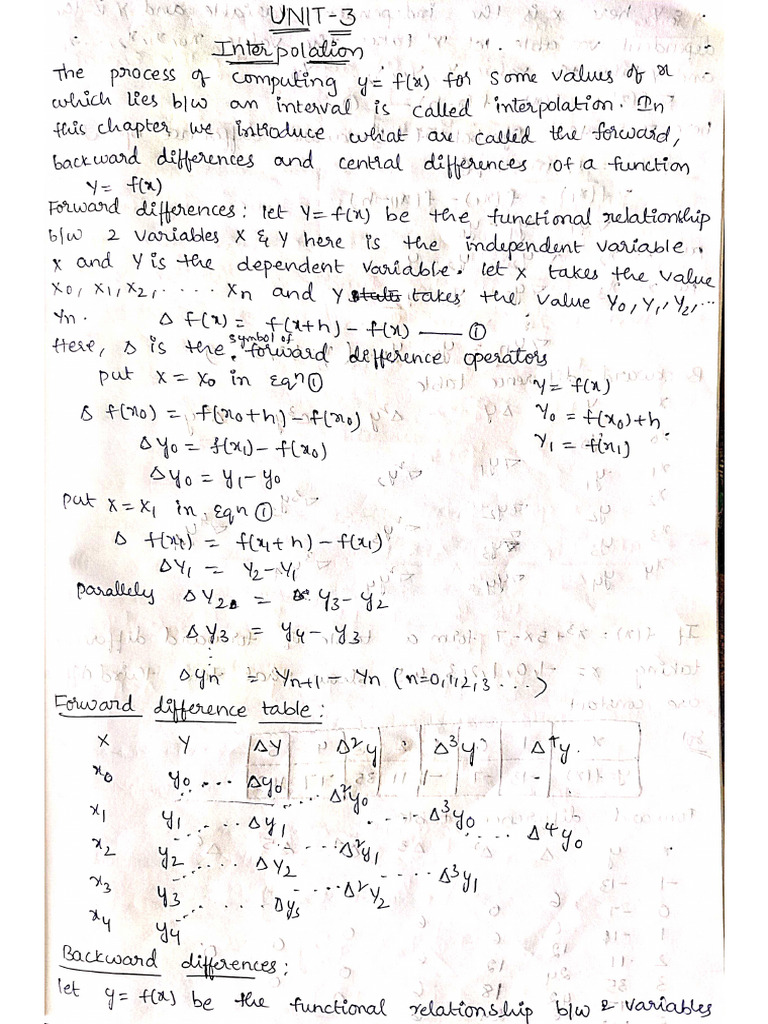 UNIT-3
Interpolation
The process of computing y= f(x) for some values of x
which lies b/w an interval is called interpolation. In
this chapter we introduce what are called the forward,
backward differences and central differences of a function
y= f(x)
Forward differences: let Y=f(x) be the functional relationship
b/w 2 variables X & Y here is the independent variable.
X and Y is the dependent variable. let X takes the value
X0, X1, X2, ..... Xn and Y takes the value Y0, Y1, Y2, ...
Yn. Δ f(x) = f(x+h) - f(x) —— ①
Here, Δ is the symbol of forward difference operators
put X = X0 in eqn ①
y = f(x)
Δ f(x0) = f(x0+h) - f(x0)
Y0 = f(x0)+h
Δy0 = f(x1) - f(x0)
Y1 = f(x1)
Δy0 = y1 - y0
put X = X1 in eqn ①
Δ f(x1) = f(x1+h) - f(x1)
ΔY1 = Y2 - Y1
parallely ΔY2 = y3 - y2
ΔY3 = y4 - y3
⋮
Δyn = Yn+1 - Yn (n=0,1,2,3 ...)
Forward difference table:
X Y ΔY Δ²y Δ³y Δ⁴y.
x0 y0 .... Δy0
.... Δ²y0
x1 y1 ..... Δy1 .... Δ³y0
.... Δ⁴y0
x2 y2 ..... ΔY2 .... Δ²y1
.... Δ³y1
x3 y3 ...... Δy3 ... Δ²Y2
x4 y4
Backward differences:
let y= f(x) be the functional relationship b/w 2 variables